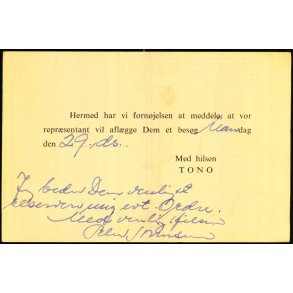 Hermed har vi fornøjelsen at meddele, at vor
repræsentant vil aflægge Dem et besøg Mandag
den 29. ds.
Med hilsen
TONO
Jeg beder Dem venligst
reservere mig evt. Ordre.
Med venlig hilsen